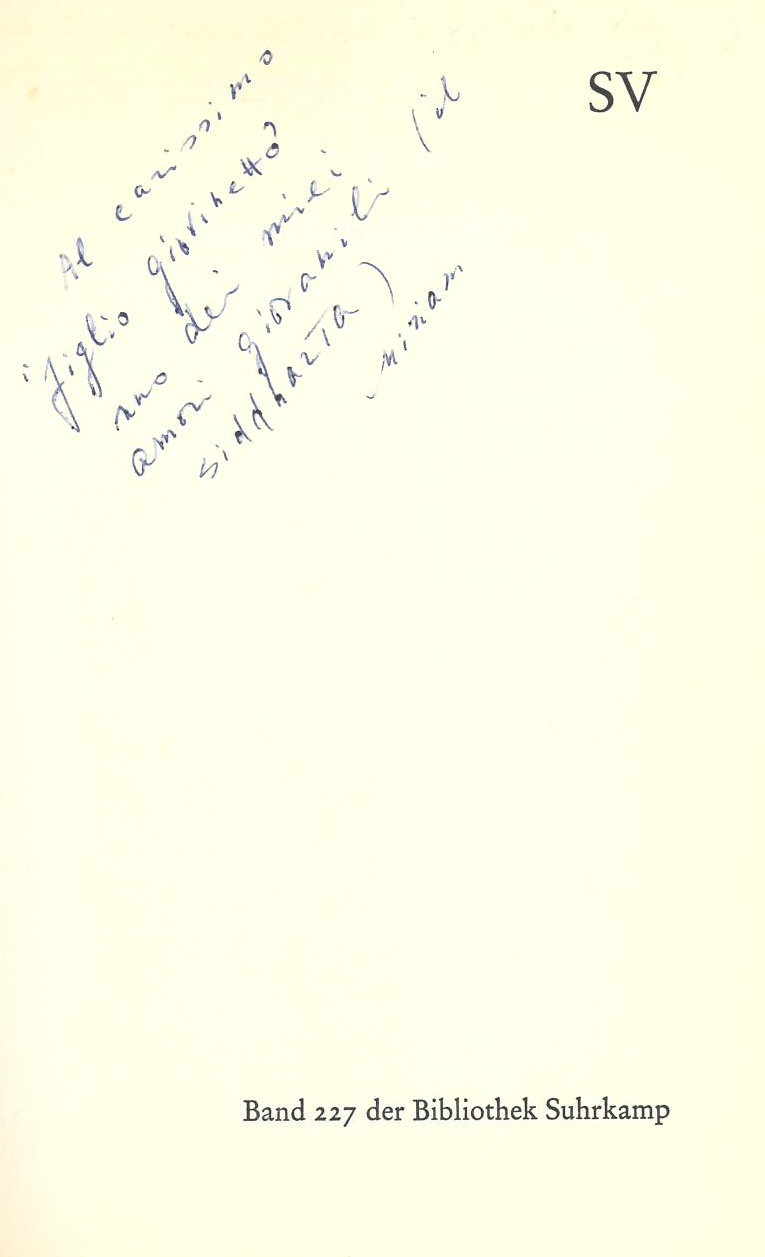 SV
Al carissimo
"figlio giovinetto"
uno dei miei
amori giovanili (il
siddharta)
Miriam
Band 227 der Bibliothek Suhrkamp